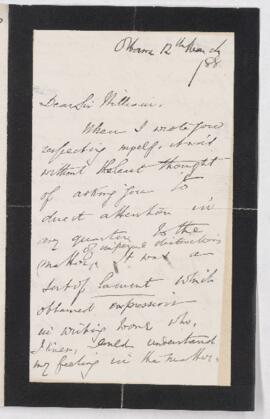 Ottawa 12th March
/88
Dear Sir William.
When I wrote you
respecting myself, it was
without the least thought
of asking you to
direct attention in
any quarter to the
matter, of imperial distinctions It was a
sort of lament which
obtained expression
in writing to one who,
I knew, could understand
my feeling in the matter.